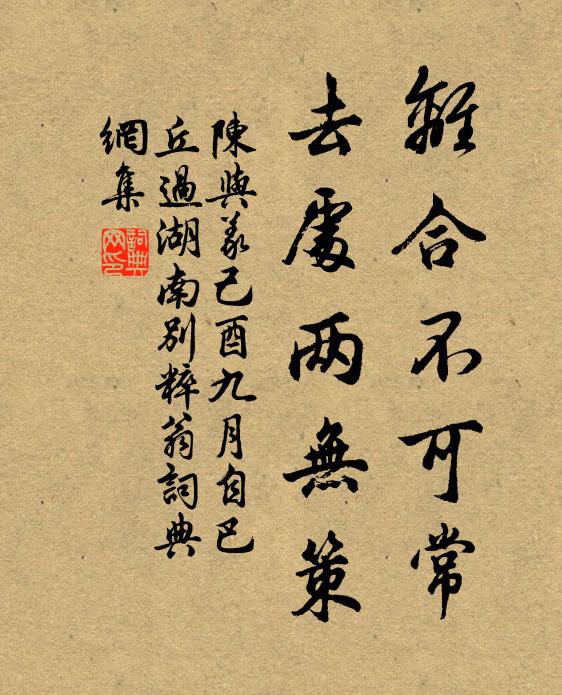 離合不可常
去處两無策
陳與义己酉九月自巴
丘過湖南別粹翁詞典
網集
詞典網印